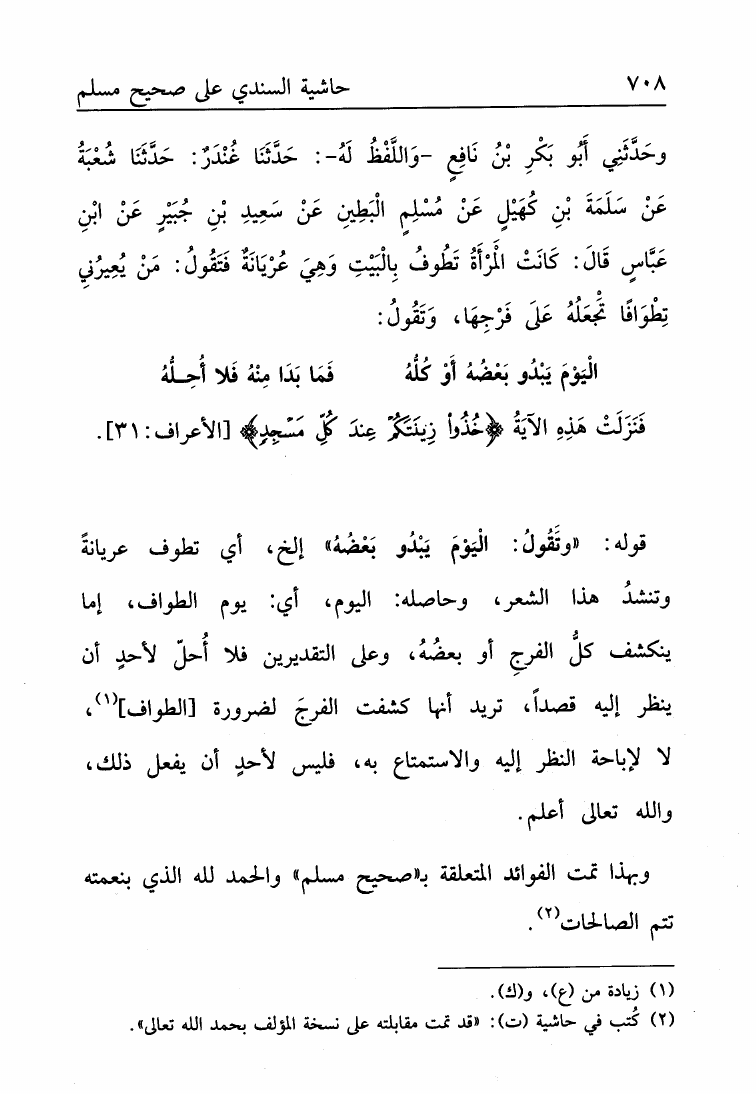 ٧٠٨ حاشية السندي على صحيح مسلم
وحَدَّثَنِي أَبُو بَكْرِ بْنُ نَافِعٍ -وَاللَّفْظُ لَهُ-: حَدَّثَنَا غُنْدَرٌ: حَدَّثَنَا شُعْبَةُ
عَنْ سَلَمَةَ بْنِ كُهَيْلٍ عَنْ مُسْلِمٍ الْبَطِينِ عَنْ سَعِيدِ بْنِ جُبَيْرٍ عَنْ ابْنِ
عَبَّاسٍ قَالَ: كَانَتْ الْمَرْأَةُ تَطُوفُ بِالْبَيْتِ وَهِيَ عُرْيَانَةٌ فَتَقُولُ: مَنْ يُعِيرُنِي
تِطْوَافًا تَجْعَلُهُ عَلَى فَرْجِهَا، وَتَقُولُ:
الْيَوْمَ يَبْدُو بَعْضُهُ أَوْ كُلُّهُ فَمَا بَدَا مِنْهُ فَلا أُحِـلُّهُ
فَنَزَلَتْ هَذِهِ الآيَةُ ﴿خُذُوا۟ زِينَتَكُمْ عِندَ كُلِّ مَسْجِدٍ﴾ [الأعراف: ٣١].
قوله: «وتَقُولُ: الْيَوْمَ يَبْدُو بَعْضُهُ» إلخ، أي تطوف عريانةً
وتنشدُ هذا الشعر، وحاصله: اليوم، أي: يوم الطواف، إما
ينكشف كلُّ الفرجِ أو بعضُهُ، وعلى التقديرين فلا أُحلّ لأحدٍ أن
ينظر إليه قصداً، تريد أنها كشفت الفرجَ لضرورة [الطواف](١)،
لا لإباحة النظر إليه والاستمتاع به، فليس لأحدٍ أن يفعل ذلك،
والله تعالى أعلم.
وبهذا تمت الفوائد المتعلقة بـ«صحيح مسلم» والحمد لله الذي بنعمته
تتم الصالحات(٢).
(١) زيادة من (ع)، و(ك).
(٢) كُتب في حاشية (ت): «قد تمت مقابلته على نسخة المؤلف بحمد الله تعالى».